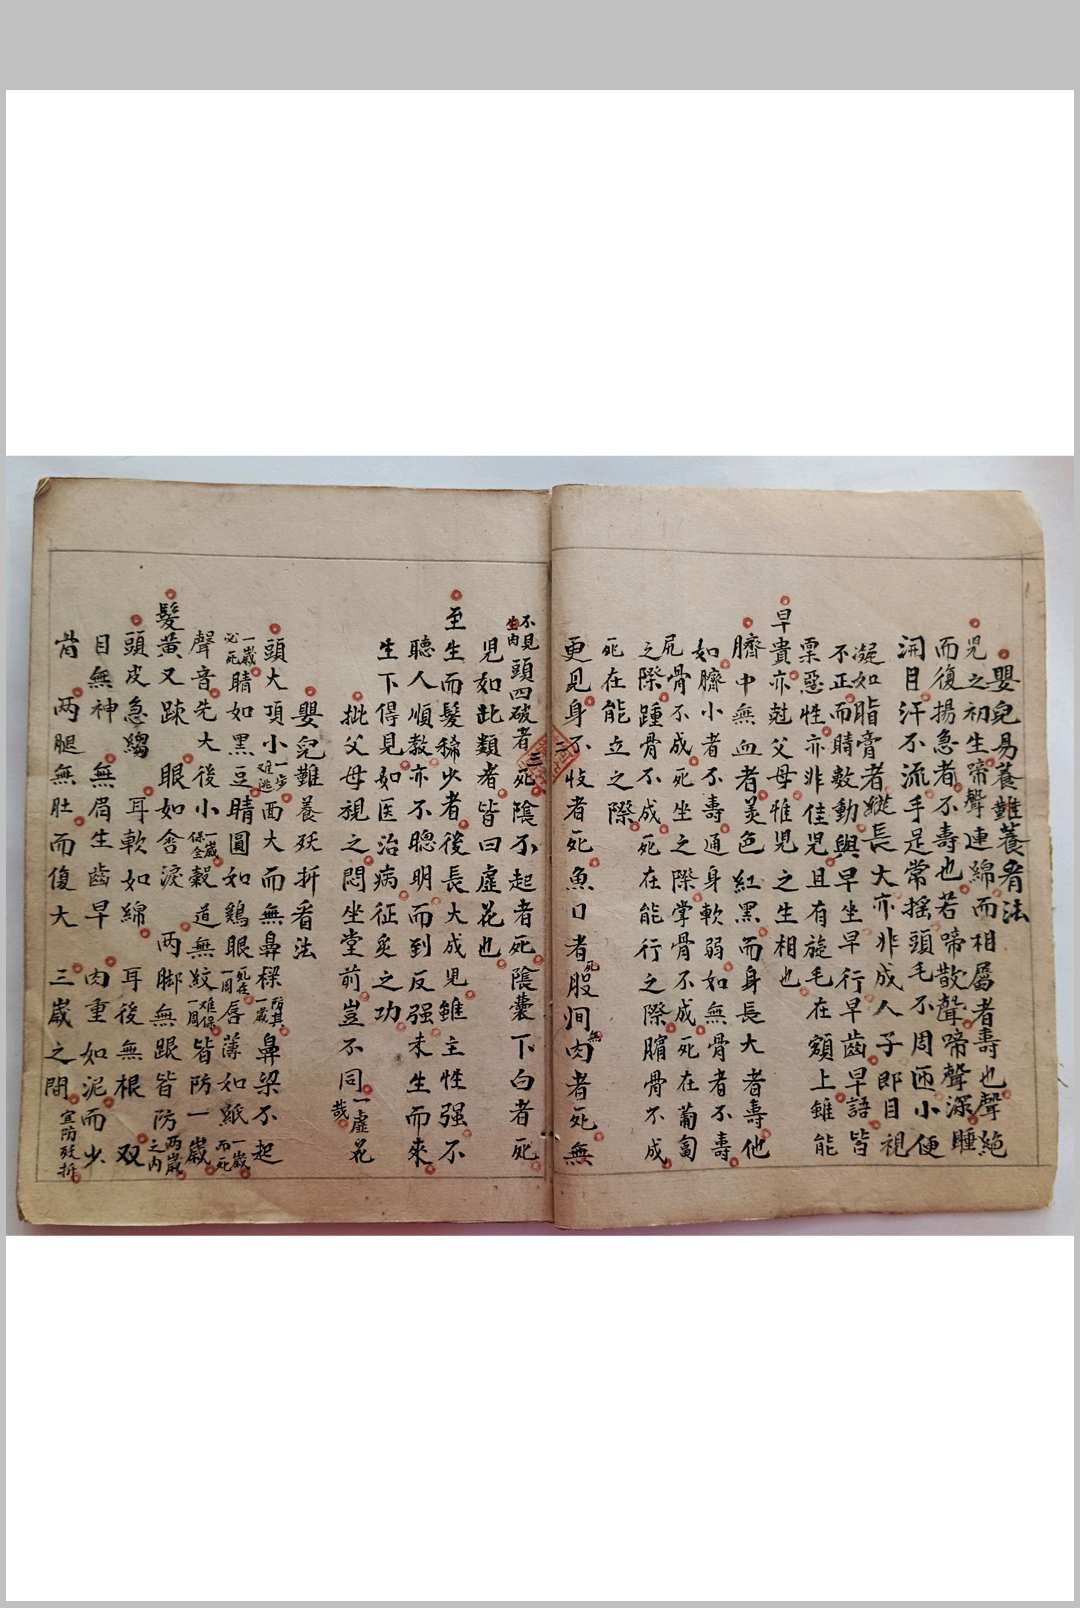 嬰兒易養難養看法
兒之初生啼聲連綿而相屬者壽也聲絕
而復揚急者不壽也若啼散聲啼聲深睡
開目汗不流手足常搖頭毛不周匝小便
凝如脂膏者縱長大亦非成人子即目視
不正而睛數動與早坐早行早齒早語皆
稟惡性亦非佳兒且有旋毛在額上雖能
早貴亦尅父母惟兒之生相也
臍中無血者美色紅黑而身長大者壽他
如臍小者不壽通身軟弱如無骨者不壽
尻骨不成死坐之際掌骨不成死在葡匐
之際踵骨不成死在能行之際臏骨不成
死在能立之際
更見身不收者死魚口者死股间無肉者死無
不見生肉頭四破者死陰不起者死陰囊下白者死
兒如此類者皆曰虛花也
至生而髮稀少者後長大成兒雖主性强不
聽人順教亦不聰明而到反强未生而來
生下得見如医治病征灸之功
批父母視之悶坐堂前豈不同一虛花哉
嬰兒難養殀折看法
頭大項小一步难逃面大而無鼻樑一歲鼻梁不起
一歲必死睛如黑豆睛圓如鷄眼一周死在唇薄如紙一歲而死
聲音先大後小一歲保全穀道無紋一周难保皆防一歲
髮黃又踈 眼如含淚 两脚無跟皆防两歲之内
頭皮急縐 耳軟如綿 耳後無根 双
目無神 無眉生齒早 肉重如泥而少
肯 两腿無肚而復大 三歲之間宜防殀折